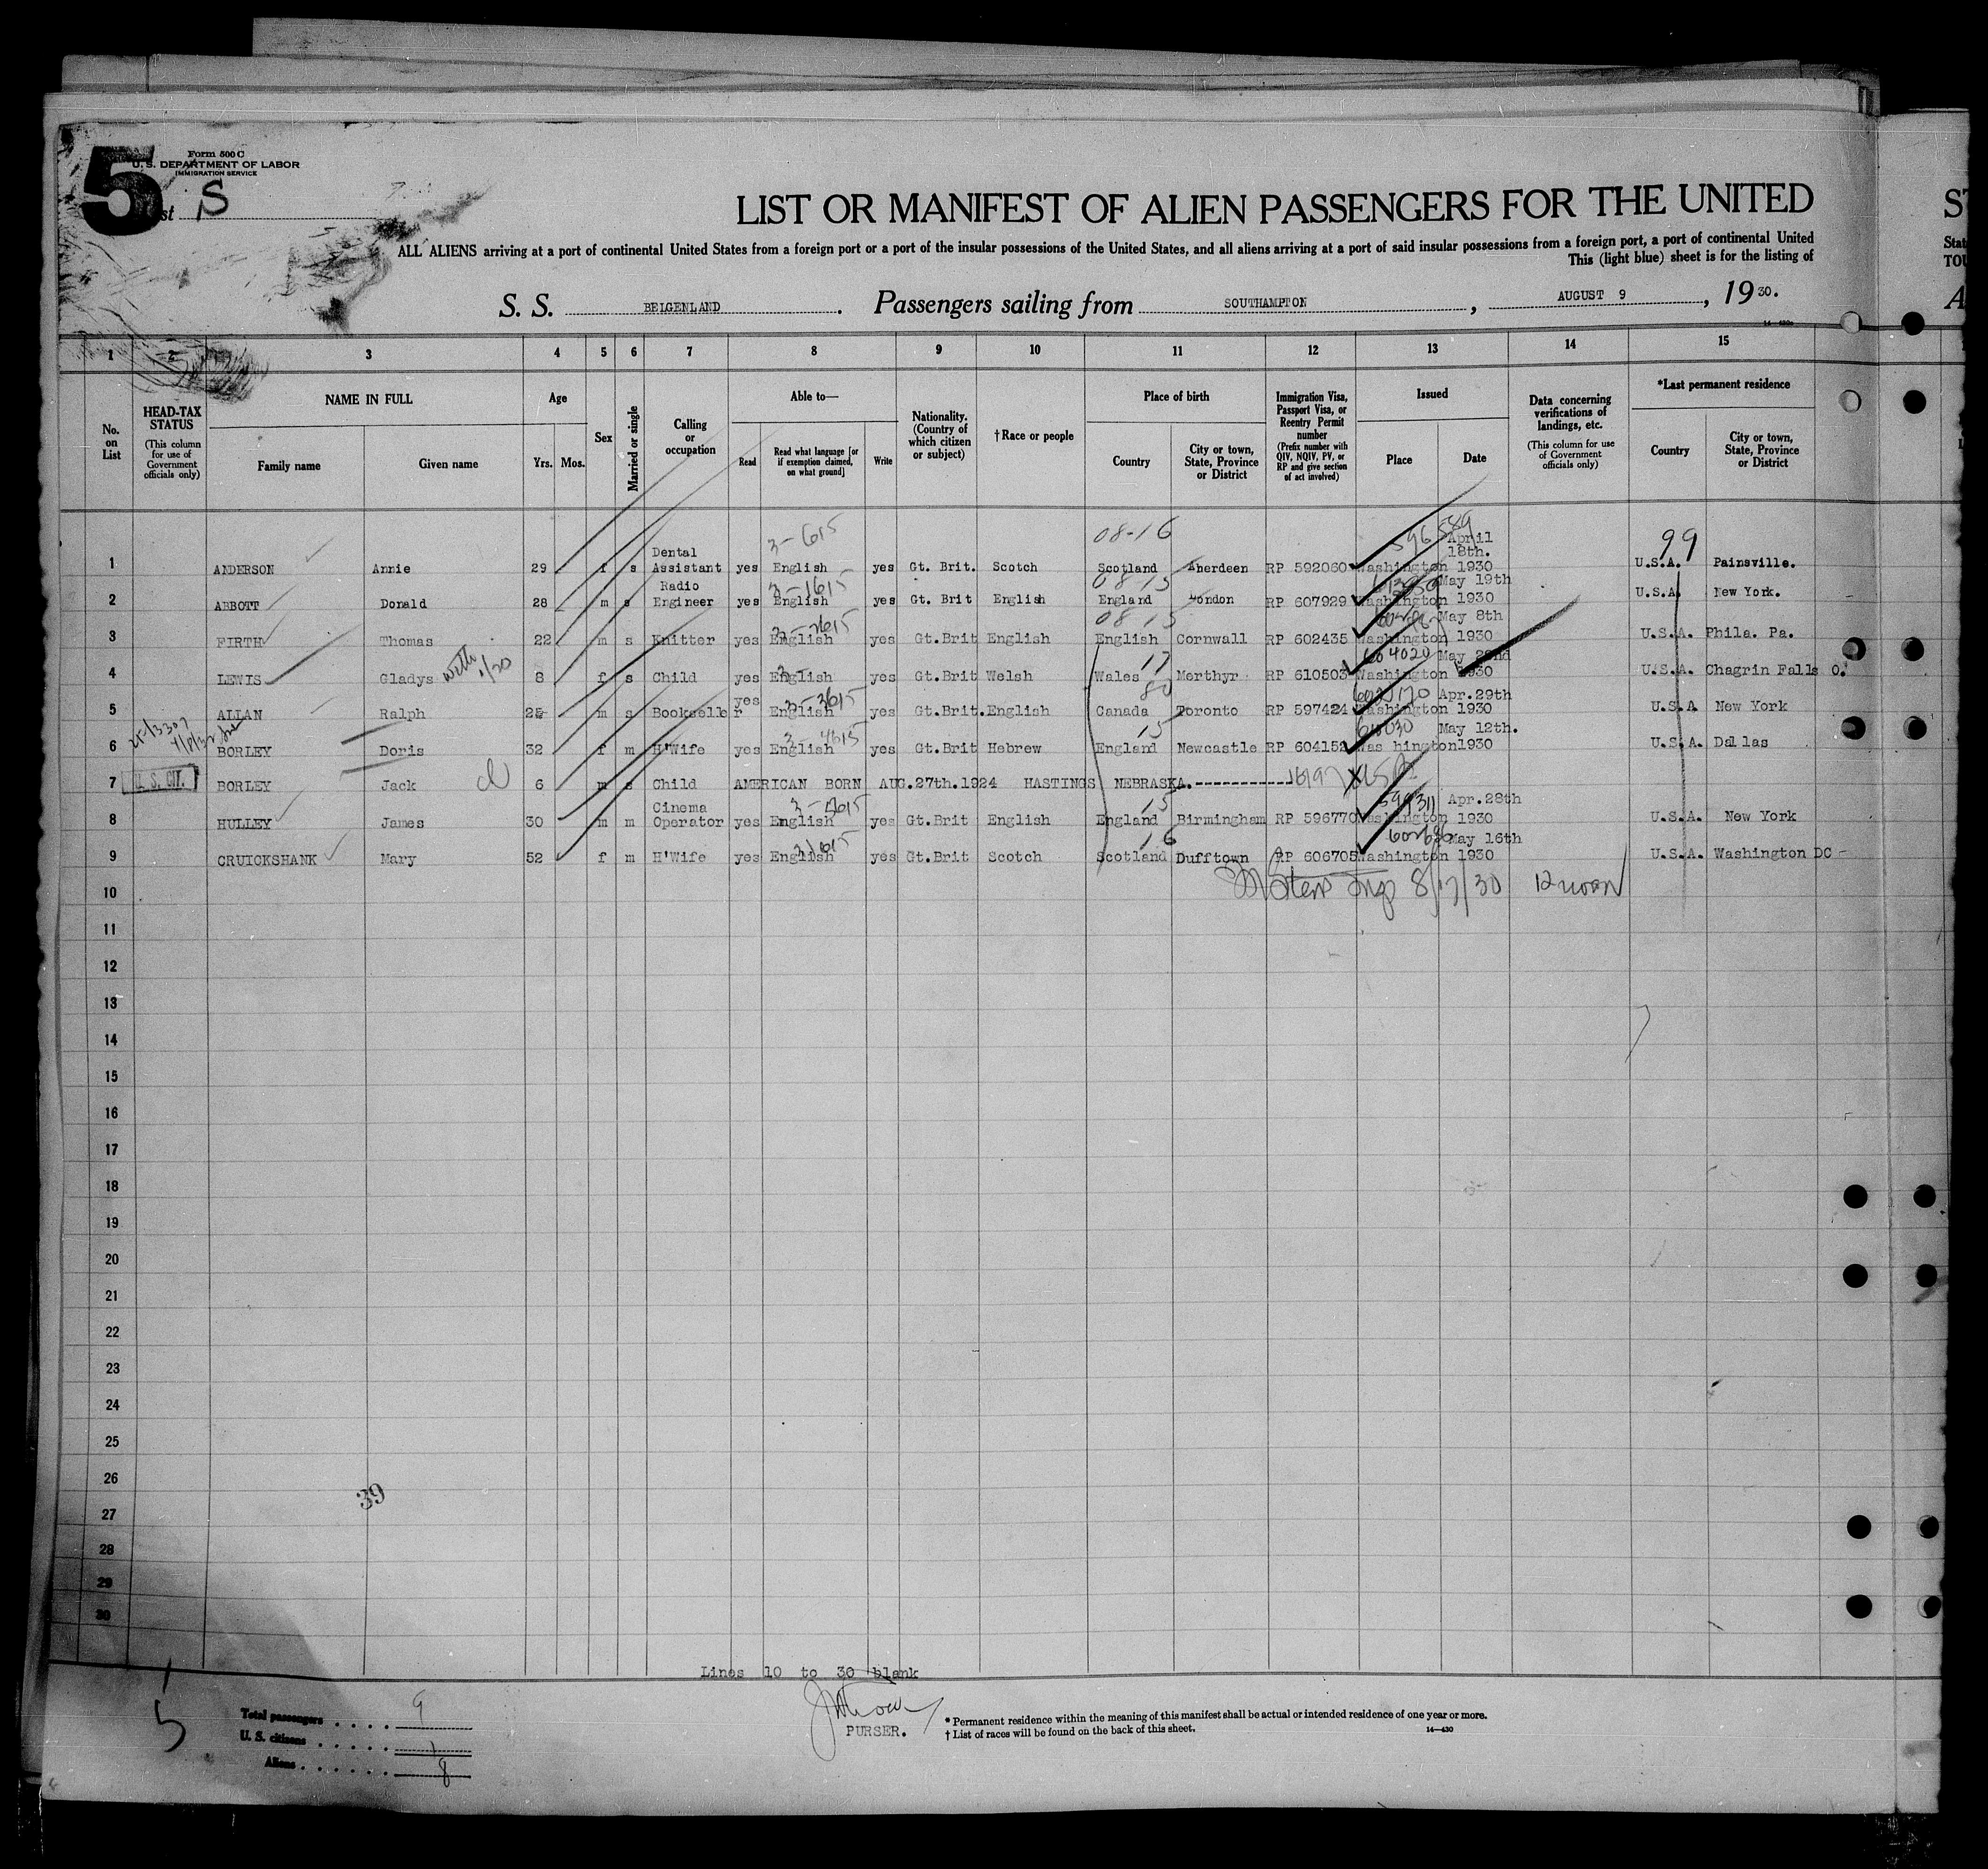 5
Form 500 C
U. S. DEPARTMENT OF LABOR
IMMIGRATION SERVICE
5
LIST OR MANIFEST OF ALIEN PASSENGERS FOR THE UNITED
ALL ALIENS arriving at a port of continental United States from a foreign port or a port of the insular possessions of the United States, and all aliens arriving at a port of said insular possessions from a foreign port, a port of continental United
This (light blue) sheet is for the listing of
S. S. BELGENLAND. Passengers sailing from SOUTHAMPTON, AUGUST 9, 19 30.
1 2 3 4 5 6 7 8 9 10 11 12 13 14 15
No. on List
HEAD-TAX STATUS (This column for use of Government officials only)
NAME IN FULL
Family name Given name
Age
Yrs. Mos.
Sex
Married or single
Calling or occupation
Able to—
Read Read what language [or if exemption claimed, on what ground] Write
Nationality. (Country of which citizen or subject)
† Race or people
Place of birth
Country City or town, State, Province or District
Immigration Visa, Passport Visa, or Reentry Permit number (Prefix number with QIV, NQIV, PV, or RP and give section of act involved)
Issued
Place Date
Data concerning verifications of landings, etc. (This column for use of Government officials only)
*Last permanent residence
Country City or town, State, Province or District
08-16 99
1 ANDERSON Annie 29 f s Dental Assistant yes English yes Gt. Brit. Scotch Scotland Aberdeen RP 592060 Washington April 18th. 1930 U.S.A. Painsville.
2 ABBOTT Donald 28 m s Radio Engineer yes English yes Gt. Brit English England London RP 607929 Washington May 19th 1930 U.S.A. New York.
3 FIRTH Thomas 22 m s Knitter yes English yes Gt.Brit English English Cornwall RP 602435 Washington May 8th 1930 U.S.A. Phila. Pa.
4 LEWIS Gladys 8 f s Child yes English yes Gt.Brit Welsh Wales Merthyr RP 610503 Washington May 22nd 1930 U.S.A. Chagrin Falls O.
5 ALLAN Ralph 25 m s Bookseller yes English yes Gt.Brit. English Canada Toronto RP 597424 Washington Apr.29th 1930 U.S.A New York
6 BORLEY Doris 32 f m H'Wife yes English yes Gt.Brit Hebrew England Newcastle RP 604152 Was hington May 12th. 1930 U.S.A. Dallas
7 U. S. CIT. BORLEY Jack 6 m s Child AMERICAN BORN AUG.27th.1924 HASTINGS NEBRASKA.
8 HULLEY James 30 m m Cinema Operator yes English yes Gt.Brit English England Birmingham RP 596770 Washington Apr.28th 1930 U.S.A. New York
9 CRUICKSHANK Mary 52 f m H'Wife yes English yes Gt.Brit Scotch Scotland Dufftown RP 606705 Washington May 16th 1930 U.S.A. Washington DC
10 8/17/30 12 noon
11
12
13
14
15
16
17
18
19
20
21
22
23
24
25
26
39
27
28
29
30
Lines 10 to 30 blank
5
Total passengers 9
U. S. citizens 1
Aliens 8
PURSER.
* Permanent residence within the meaning of this manifest shall be actual or intended residence of one year or more.
† List of races will be found on the back of this sheet. 14—430